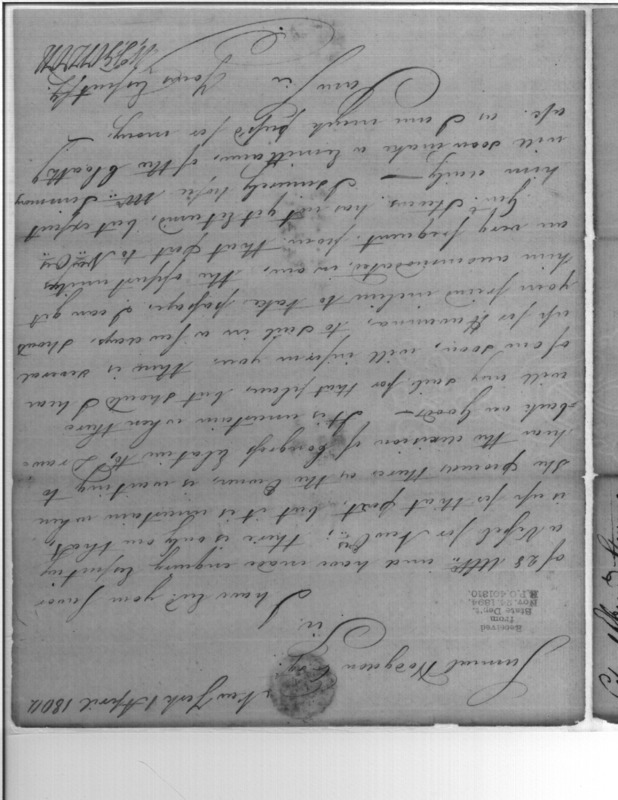 New York 1 April 1802
Samuel Hodgdon Esq.
Sir.
Received
from
State Dep't.
Nov. 21, 1894.
R.P.O. 401810.
I have rec'd your favor
of 28 Ulto. and have made enquiry respecting
a Vessel for New Ors; there is only one that
is up for that port, but it is uncertain when
She proceeds there as the Owner is wanting to
hear the decision of Congress relative to Draw
-back on Goods — It is uncertain when there
will any sail for that place but should I hear
of one soon, will inform you there is several
up for Havanna, to sail in a few days. Should
your friend incline to take passage, I can get
him accommodated, in one, the opportunities
are very frequent from that port to New Ors
Genl. Stevens has not yet returned, but expect
him daily — I sincerely hope Mr. Simmons
will soon make a Remittance, of the Cloathg
a/c. as I am much press'd for money.
I am Sir
Yours Respectfy.